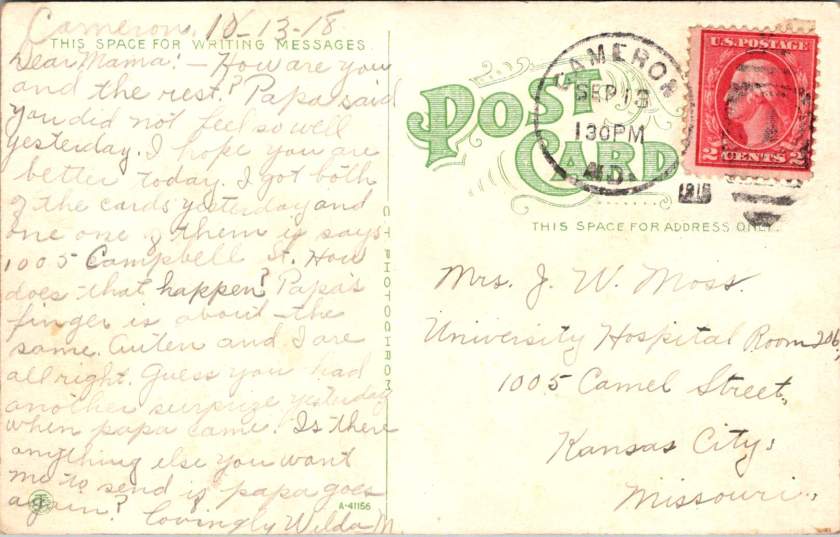 Cameron, 10-13-18
THIS SPACE FOR WRITING MESSAGES
Dear Mama: - How are you
and the rest? Papa said
you did not feel so well
yesterday. I hope you are
better today. I got both
of the cards yesterday and
one of them it says
1005 Campbell St. How
does that happen? Papa's
finger is about the
same. Auten and I are
all right. Guess you had
another surprize yesterday
when papa came. Is there
anything else you want
me to send if papa goes
again? Lovingly Wilda M.
A-41156
C T PHOTOCHROM
POST
CARD
THIS SPACE FOR ADDRESS ONLY.
CAMERON
SEP 13
130PM
MO.
U.S. POSTAGE
2 CENTS 2
Mrs. J. W. Moss.
University Hospital Room 206,
1005 Camel Street,
Kansas City,
Missouri.